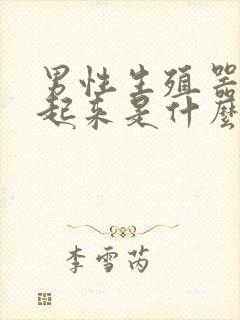 男性生殖器
起来是什麼
李雪芮